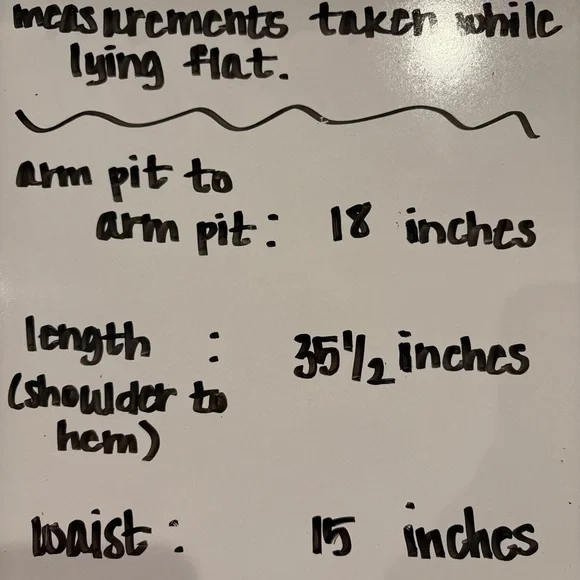 measurements taken while
lying flat.
arm pit to
arm pit: 18 inches
length : 35 1/2 inches
(shoulder to
hem)
waist: 15 inches